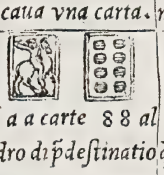 caua vna carta.
a a carte 8 8 al
dro di p̄deſtinatio